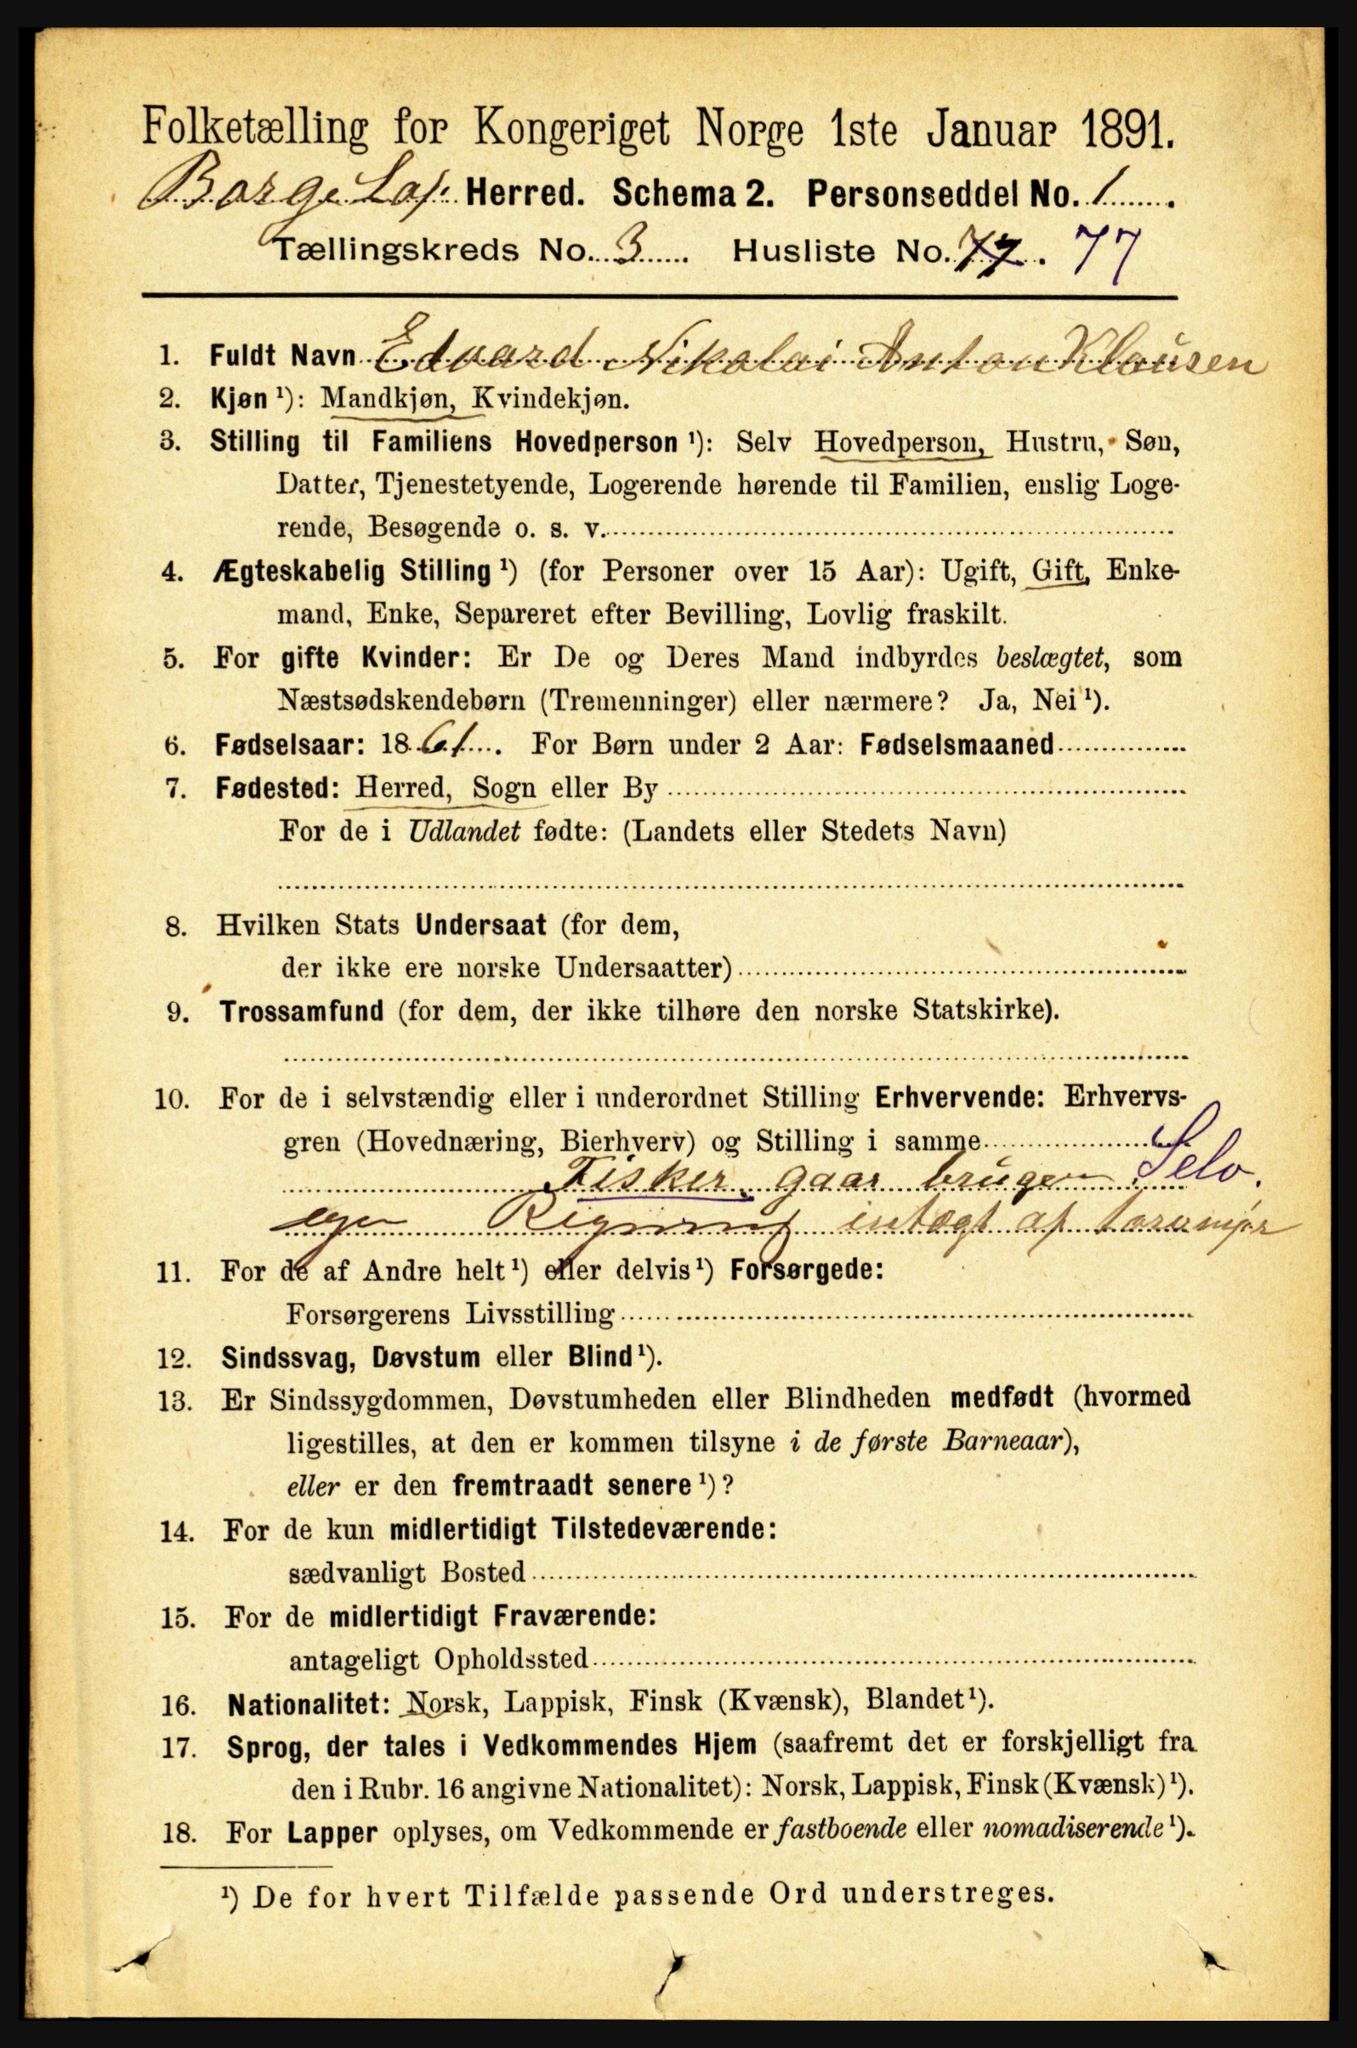 Folketælling for Kongeriget Norge 1ste Januar 1891.
Borge Lof. Herred. Schema 2. Personseddel No. 1.
Tællingskreds No. 3. Husliste No. 77. 77
1. Fuldt Navn Edvard Nikolai Anton Klausen
2. Kjøn ¹): Mandkjøn, Kvindekjøn.
3. Stilling til Familiens Hovedperson ¹): Selv Hovedperson, Hustru, Søn,
Datter, Tjenestetyende, Logerende hørende til Familien, enslig Loge-
rende, Besøgende o. s. v.
4. Ægteskabelig Stilling ¹) (for Personer over 15 Aar): Ugift, Gift, Enke-
mand, Enke, Separeret efter Bevilling, Lovlig fraskilt.
5. For gifte Kvinder: Er De og Deres Mand indbyrdes beslægtet, som
Næstsødskendebørn (Tremenninger) eller nærmere? Ja, Nei ¹).
6. Fødselsaar: 1861. For Børn under 2 Aar: Fødselsmaaned
7. Fødested: Herred, Sogn eller By
For de i Udlandet fødte: (Landets eller Stedets Navn)
8. Hvilken Stats Undersaat (for dem,
der ikke ere norske Undersaatter)
9. Trossamfund (for dem, der ikke tilhøre den norske Statskirke).
10. For de i selvstændig eller i underordnet Stilling Erhvervende: Erhvervs-
gren (Hovednæring, Bierhverv) og Stilling i samme
Fisker, gaar bruger Selv.
egen intægt af
11. For de af Andre helt ¹) eller delvis ¹) Forsørgede:
Forsørgerens Livsstilling
12. Sindssvag, Døvstum eller Blind ¹).
13. Er Sindssygdommen, Døvstumheden eller Blindheden medfødt (hvormed
ligestilles, at den er kommen tilsyne i de første Barneaar),
eller er den fremtraadt senere ¹)?
14. For de kun midlertidigt Tilstedeværende:
sædvanligt Bosted
15. For de midlertidigt Fraværende:
antageligt Opholdssted
16. Nationalitet: Norsk, Lappisk, Finsk (Kvænsk), Blandet ¹).
17. Sprog, der tales i Vedkommendes Hjem (saafremt det er forskjelligt fra
den i Rubr. 16 angivne Nationalitet): Norsk, Lappisk, Finsk (Kvænsk) ¹).
18. For Lapper oplyses, om Vedkommende er fastboende eller nomadiserende ¹).
¹) De for hvert Tilfælde passende Ord understreges.